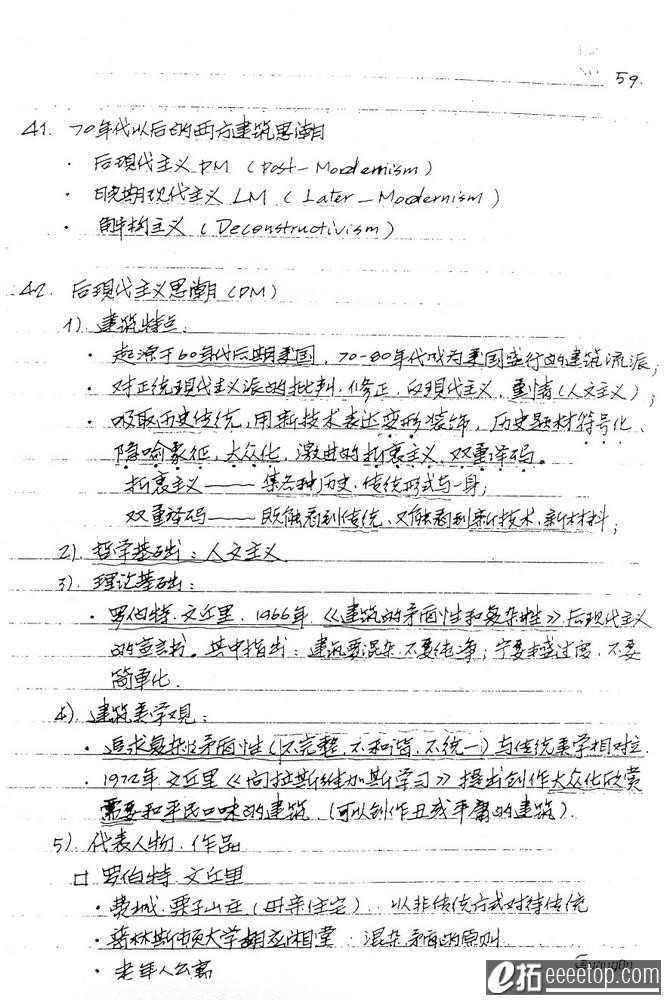 59.
41. 70年代以后的西方建筑思潮
· 后现代主义 PM (Post-Modernism)
· 晚期现代主义 LM (Later-Modernism)
· 解构主义 (Deconstructivism)
42. 后现代主义思潮 (PM)
1). 建筑特点:
· 起源于60年代后期美国, 70-80年代成为美国盛行的建筑流派;
· 对正统现代主义派的批判、修正, 反现代主义, 重情(人文主义);
· 吸取历史传统, 用新技术表达变形装饰, 历史题材符号化、
隐喻象征, 大众化, 激进的折衷主义, 双重译码。
折衷主义——集各种历史、传统形式与一身;
双重译码——既能看到传统, 又能看到新技术、新材料;
2). 哲学基础: 人文主义
3). 理论基础:
· 罗伯特·文丘里, 1966年《建筑的矛盾性和复杂性》后现代主义
的宣言书。其中指出: 建筑要混杂, 不要纯净; 宁要丰盛过度, 不要
简单化.
4). 建筑美学观:
· 追求复杂性矛盾性(不完整, 不和谐, 不统一)与传统美学相对立.
· 1972年 文丘里《向拉斯维加斯学习》提出创作大众化欣赏
需要和平民口味的建筑. (可以创作丑或平庸的建筑).
5). 代表人物、作品
□ 罗伯特·文丘里
· 费城·栗子山庄(母亲住宅): 以非传统方式对待传统
· 普林斯顿大学胡应湘堂: 混杂矛盾的原则
· 老年人公寓
e拓 eeeetop.com